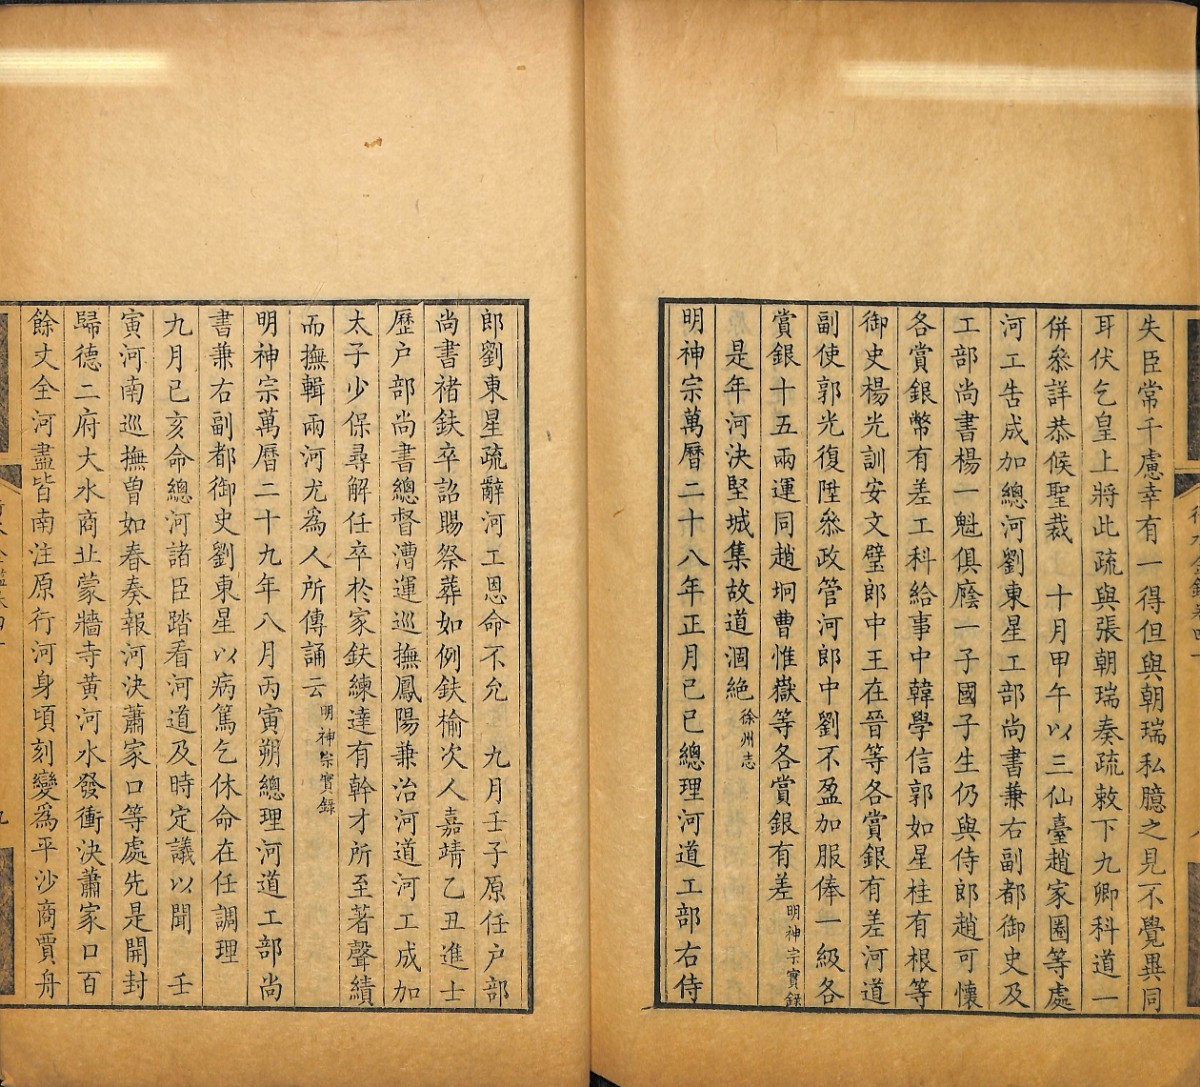 失臣常千慮幸有一得但與朝瑞私臆之見不覺異同
耳伏乞皇上將此疏與張朝瑞奏疏敕下九卿科道一
併叅詳恭候聖裁　十月甲午以三仙臺趙家圈等處
河工告成加總河劉東星工部尚書兼右副都御史及
工部尚書楊一魁俱廕一子國子生仍與侍郎趙可懷
各賞銀幣有差工科給事中韓學信郭如星桂有根等
御史楊光訓安文璧郎中王在晉等各賞銀有差河道
副使郭光復陞叅政管河郎中劉不盈加服俸一級各
賞銀十五兩運同趙坰曹惟嶽等各賞銀有差明神宗實錄
是年河決堅城集故道涸絶徐州志
明神宗萬曆二十八年正月己巳總理河道工部右侍
郎劉東星疏辭河工恩命不允　九月壬子原任户部
尚書褚鈇卒詔賜祭葬如例鈇榆次人嘉靖乙丑進士
歷户部尚書總督漕運巡撫鳳陽兼治河道河工成加
太子少保尋解任卒於家鈇練達有幹才所至著聲績
而撫輯兩河尤為人所傳誦云明神宗實錄
明神宗萬曆二十九年八月丙寅朔總理河道工部尚
書兼右副都御史劉東星以病篤乞休命在任調理
九月己亥命總河諸臣踏看河道及時定議以聞　壬
寅河南巡撫曾如春奏報河決蕭家口等處先是開封
歸德二府大水商丘蒙牆寺黄河水發衝決蕭家口百
餘丈全河盡皆南注原行河身頃刻變為平沙商賈舟